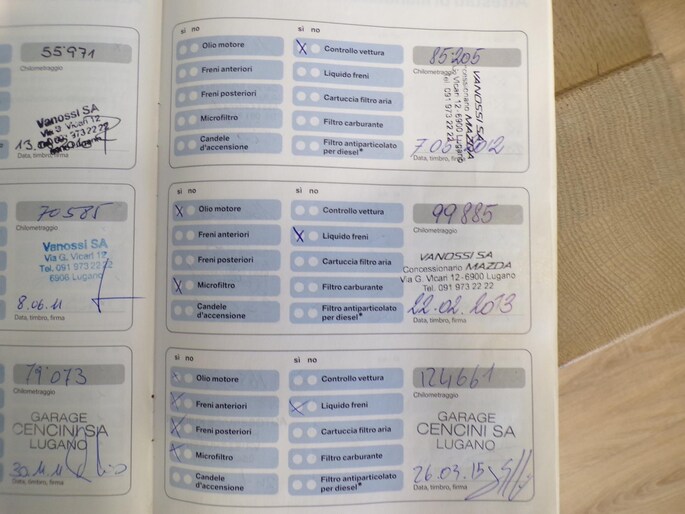 55'971
Chilometraggio
Vanossi SA
Via G. Vicari 12
Data, timbro, firma
70585
Chilometraggio
Vanossi SA
Via G. Vicari 12
Tel. 091 973 22 22
6900 Lugano
8.06.11
Data, timbro, firma
79'073
Chilometraggio
GARAGE
CENCINI SA
LUGANO
30.11.11
Data, timbro, firma
si no
Olio motore
Freni anteriori
Freni posteriori
Microfiltro
Candele
d'accensione
si no
X Controllo vettura
Liquido freni
Cartuccia filtro aria
Filtro carburante
Filtro antiparticolato
per diesel*
85'205
Chilometraggio
VANOSSI SA
Concessionario MAZDA
Via G. Vicari 12 - 6900 Lugano
Tel. 091 973 22 22
Data, timbro, firma
si no
X Olio motore
Freni anteriori
Freni posteriori
X Microfiltro
Candele
d'accensione
si no
Controllo vettura
X Liquido freni
Cartuccia filtro aria
Filtro carburante
Filtro antiparticolato
per diesel*
99'885
Chilometraggio
VANOSSI SA
Concessionario MAZDA
Via G. Vicari 12 - 6900 Lugano
Tel. 091 973 22 22
22.02.2013
Data, timbro, firma
si no
X Olio motore
X Freni anteriori
X Freni posteriori
X Microfiltro
Candele
d'accensione
si no
Controllo vettura
X Liquido freni
Cartuccia filtro aria
Filtro carburante
Filtro antiparticolato
per diesel*
124661
Chilometraggio
GARAGE
CENCINI SA
LUGANO
26.03.15
Data, timbro, firma